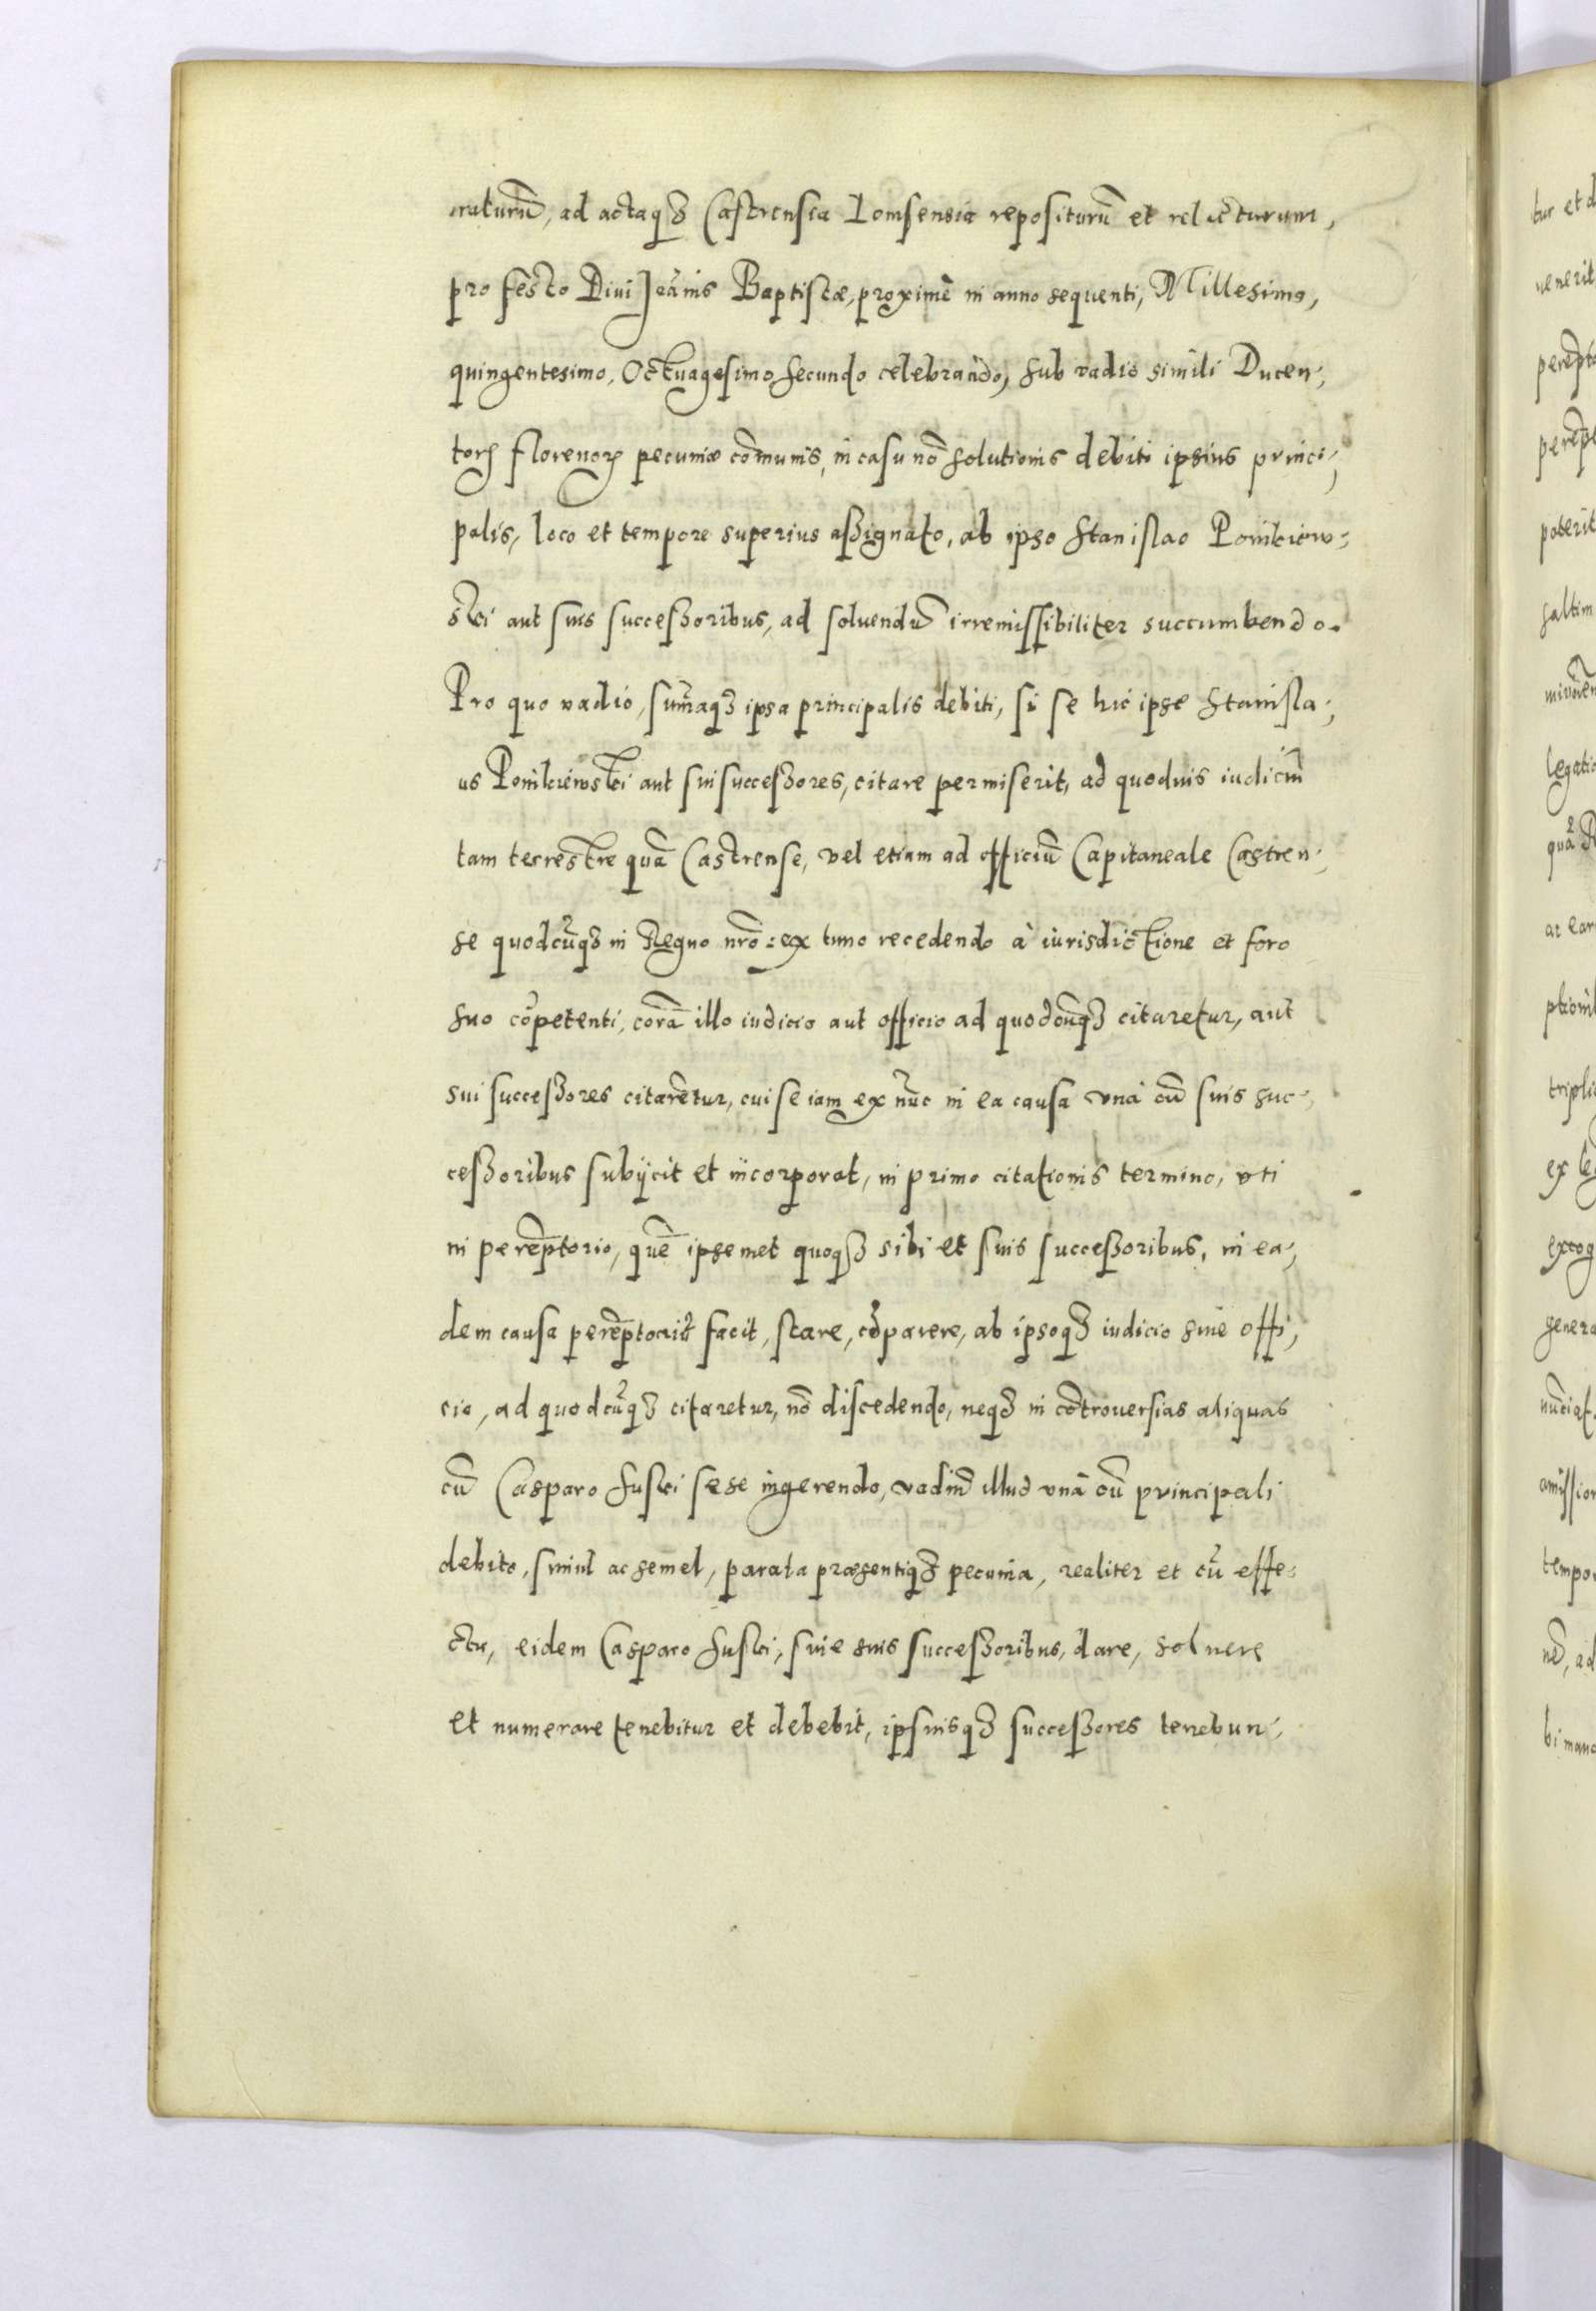 raturũ, ad actaq₃ Castrensia Lomsensia repositurũ et relicturum,
pro festo Diui Joãnis Baptistæ, proximè in anno sequenti, Millesimo,
quingentesimo, Octuagesimo secundo celebrando, sub vadio simili Ducen-
torꝝ florenorꝝ pecuniæ cõmunis, in casu nõ solutionis debiti ipsius princi-
palis, loco et tempore superius aßignato, ab ipso Stanislao Ponikiew-
ski aut suis succeßoribus, ad soluendũ irremissibiliter succumbendo.
Pro quo vadio, sum̃aq₃ ipsa principalis debiti, si se hic ipse Stanisla-
us Ponikiewski aut sui succeßores, citare permiserit, ad quoduis iudiciũ
tam terrestre quã Castrense, vel etiam ad officiũ Capitaneale Castren-
se quodcũq₃ in Regno nrõ: ex tunc recedendo à iurisdictione et foro
suo cõpetenti, corã illo iudicio aut officio ad quodcũq₃ citaretur, aut
sui succeßores citarẽtur, cui se iam ex nũc in ea causa vnà cũ suis suc-
ceßoribus subijcit et incorporat, in primo citationis termino, vti
in perẽptorio, quẽ ipsemet quoq₃ sibi et suis succeßoribus, in ea-
dem causa perẽptoriũ facit, stare, cõparere, ab ipsoq₃ iudicio siue offi-
cio, ad quodcũq₃ citaretur, nõ discedendo, neq₃ in cõtrouersias aliquas
cũ Casparo Suski sese ingerendo, vadiũ illud vnà cũ principali
debito, simul ac semel, parata præsentiq₃ pecunia, realiter et cũ effe-
ctu, eidem Casparo Suski, siue suis succeßoribus, dare, soluere
et numerare tenebitur et debebit, ipsiusq₃ succeßores tenebun-